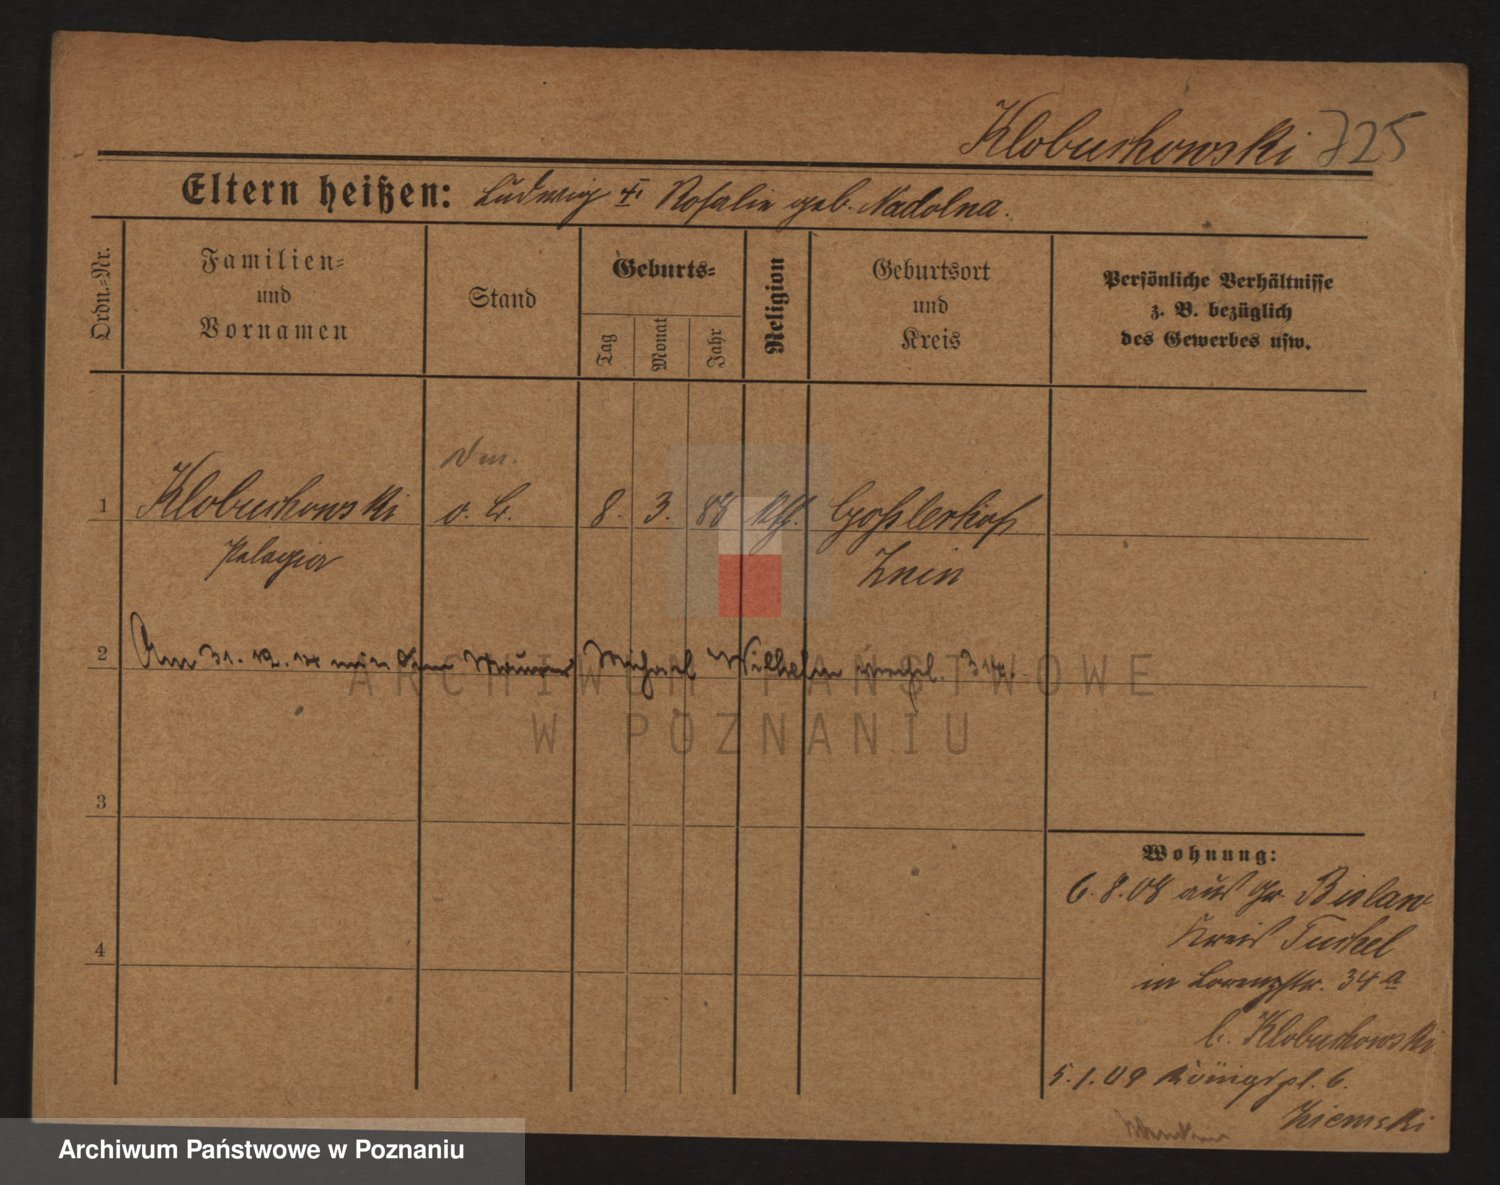 Klobuchowski 725
Eltern heißen: Ludwig u. Rosalie geb. Nadolna.
Ordn.-Nr.
Familien-
und
Vornamen
Stand
Geburts-
Tag
Monat
Jahr
Religion
Geburtsort
und
Kreis
Persönliche Verhältnisse
z. B. bezüglich
des Gewerbes usw.
1 Klobuchowski o. B. 8. 3. 88 kth. Goßlershof
Pelagia Znin
2 Am 31. 12. 14 mit dem Maurer Michael Wilhelm
3
4
Wohnung:
6.8.08 aus Gr. Bislaw
Kreis Tuchel
in Lorenzstr. 34a
b. Klobuchowski
5.1.09 Königspl. 6.
Ziemski
ARCHIWUM PAŃSTWOWE
W POZNANIU
Archiwum Państwowe w Poznaniu